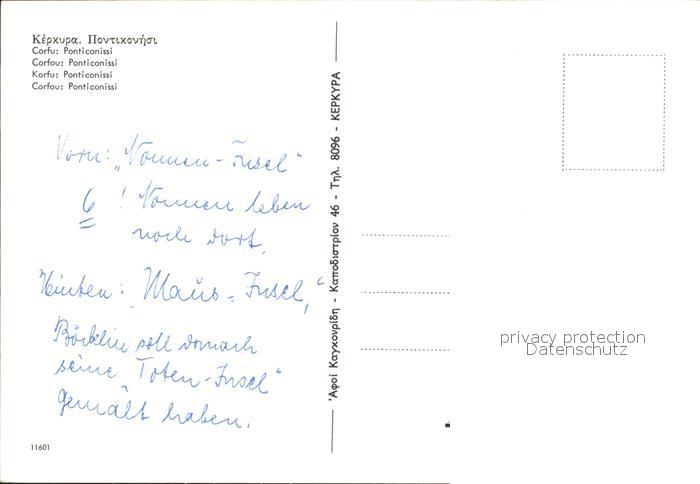 Κέρκυρα. Ποντικονήσι
Corfu: Ponticonissi
Corfou: Ponticonissi
Korfu: Ponticonissi
Corfou: Ponticonissi
Vorn: „Nonnen-Insel“
6 ! Nonnen leben
noch dort.
Hinten: „Maus-Insel,“
Böcklin soll danach
seine „Toten-Insel“
gemalt haben.
11601
Ἀφοί Καγκουρίδη - Καποδιστρίου 46 - Τηλ. 8096 - ΚΕΡΚΥΡΑ
privacy protection
Datenschutz